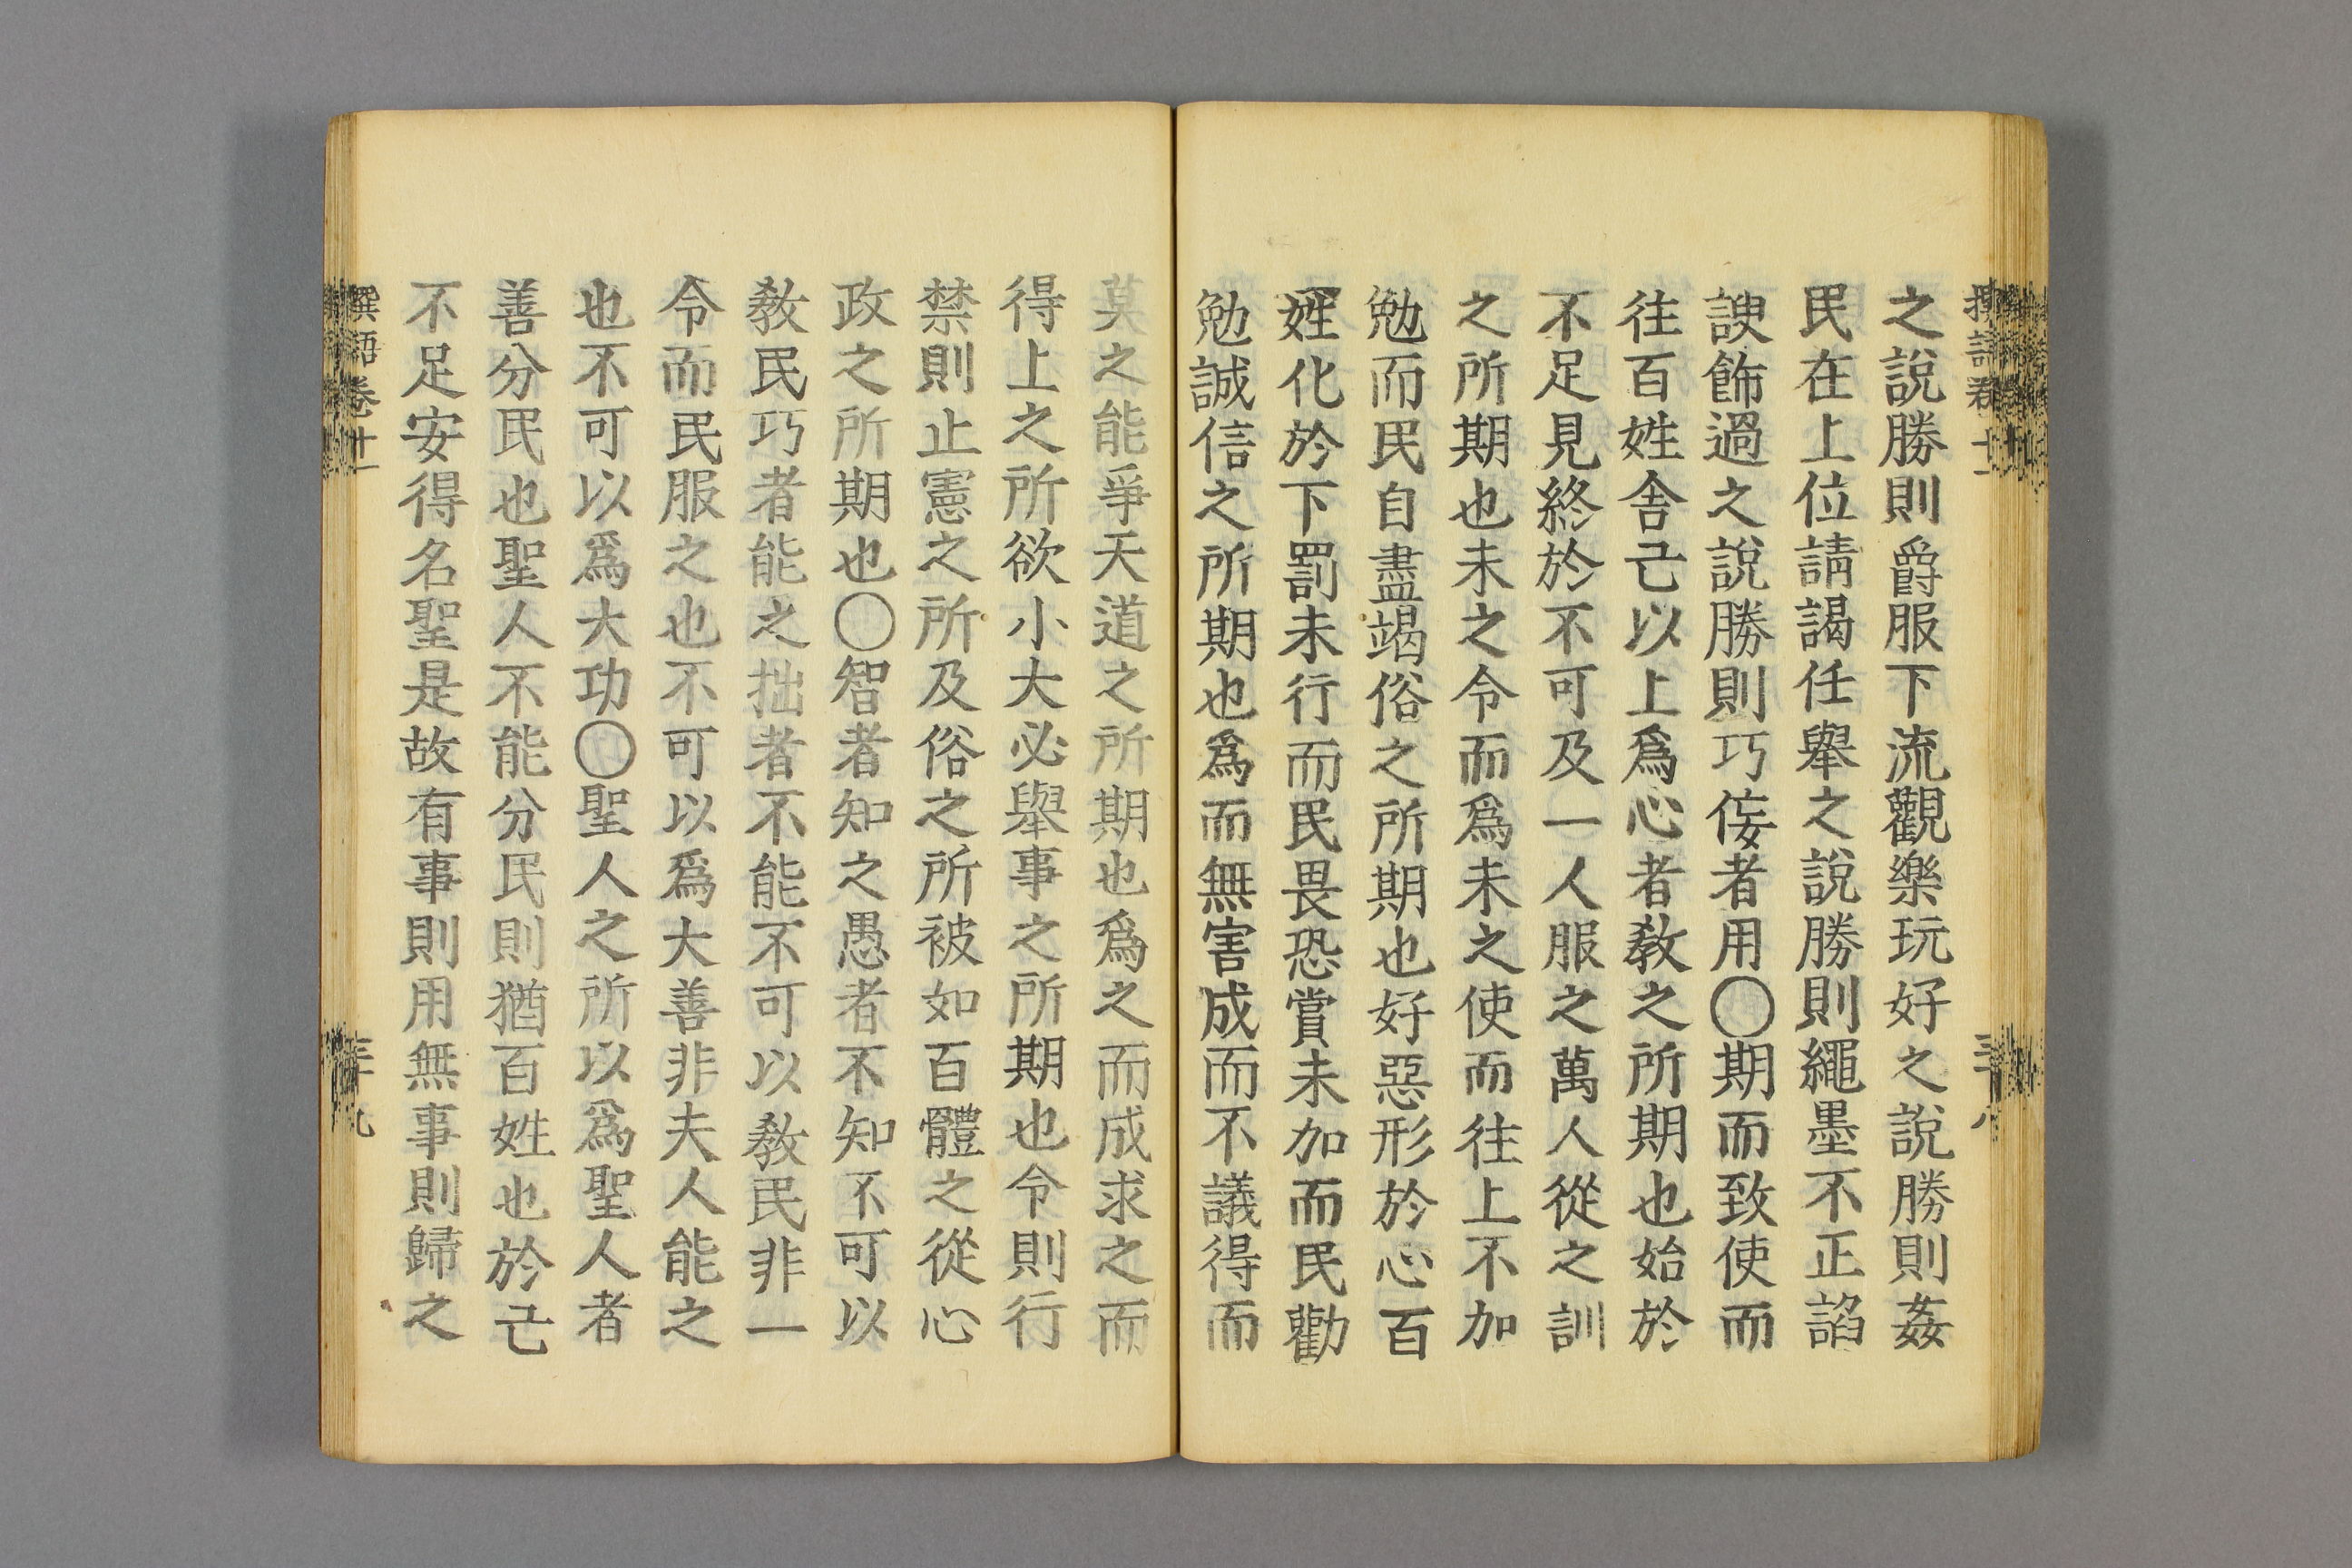 之說勝則爵服下流觀樂玩好之說勝則姦
民在上位請謁任舉之說勝則繩墨不正諂
諛飾過之說勝則巧侫者用〇期而致使而
往百姓舍己以上爲心者敎之所期也始於
不足見終於不可及一人服之萬人從之訓
之所期也未之令而爲未之使而往上不加
勉而民自盡竭俗之所期也好惡形於心百
姓化於下罰未行而民畏恐賞未加而民勸
勉誠信之所期也爲而無害成而不議得而
莫之能爭天道之所期也爲之而成求之而
得上之所欲小大必舉事之所期也令則行
禁則止憲之所及俗之所被如百體之從心
政之所期也〇智者知之愚者不知不可以
敎民巧者能之拙者不能不可以敎民非一
令而民服之也不可以爲大善非夫人能之
也不可以爲大功〇聖人之所以爲聖人者
善分民也聖人不能分民則猶百姓也於己
不足安得名聖是故有事則用無事則歸之
語卷十一